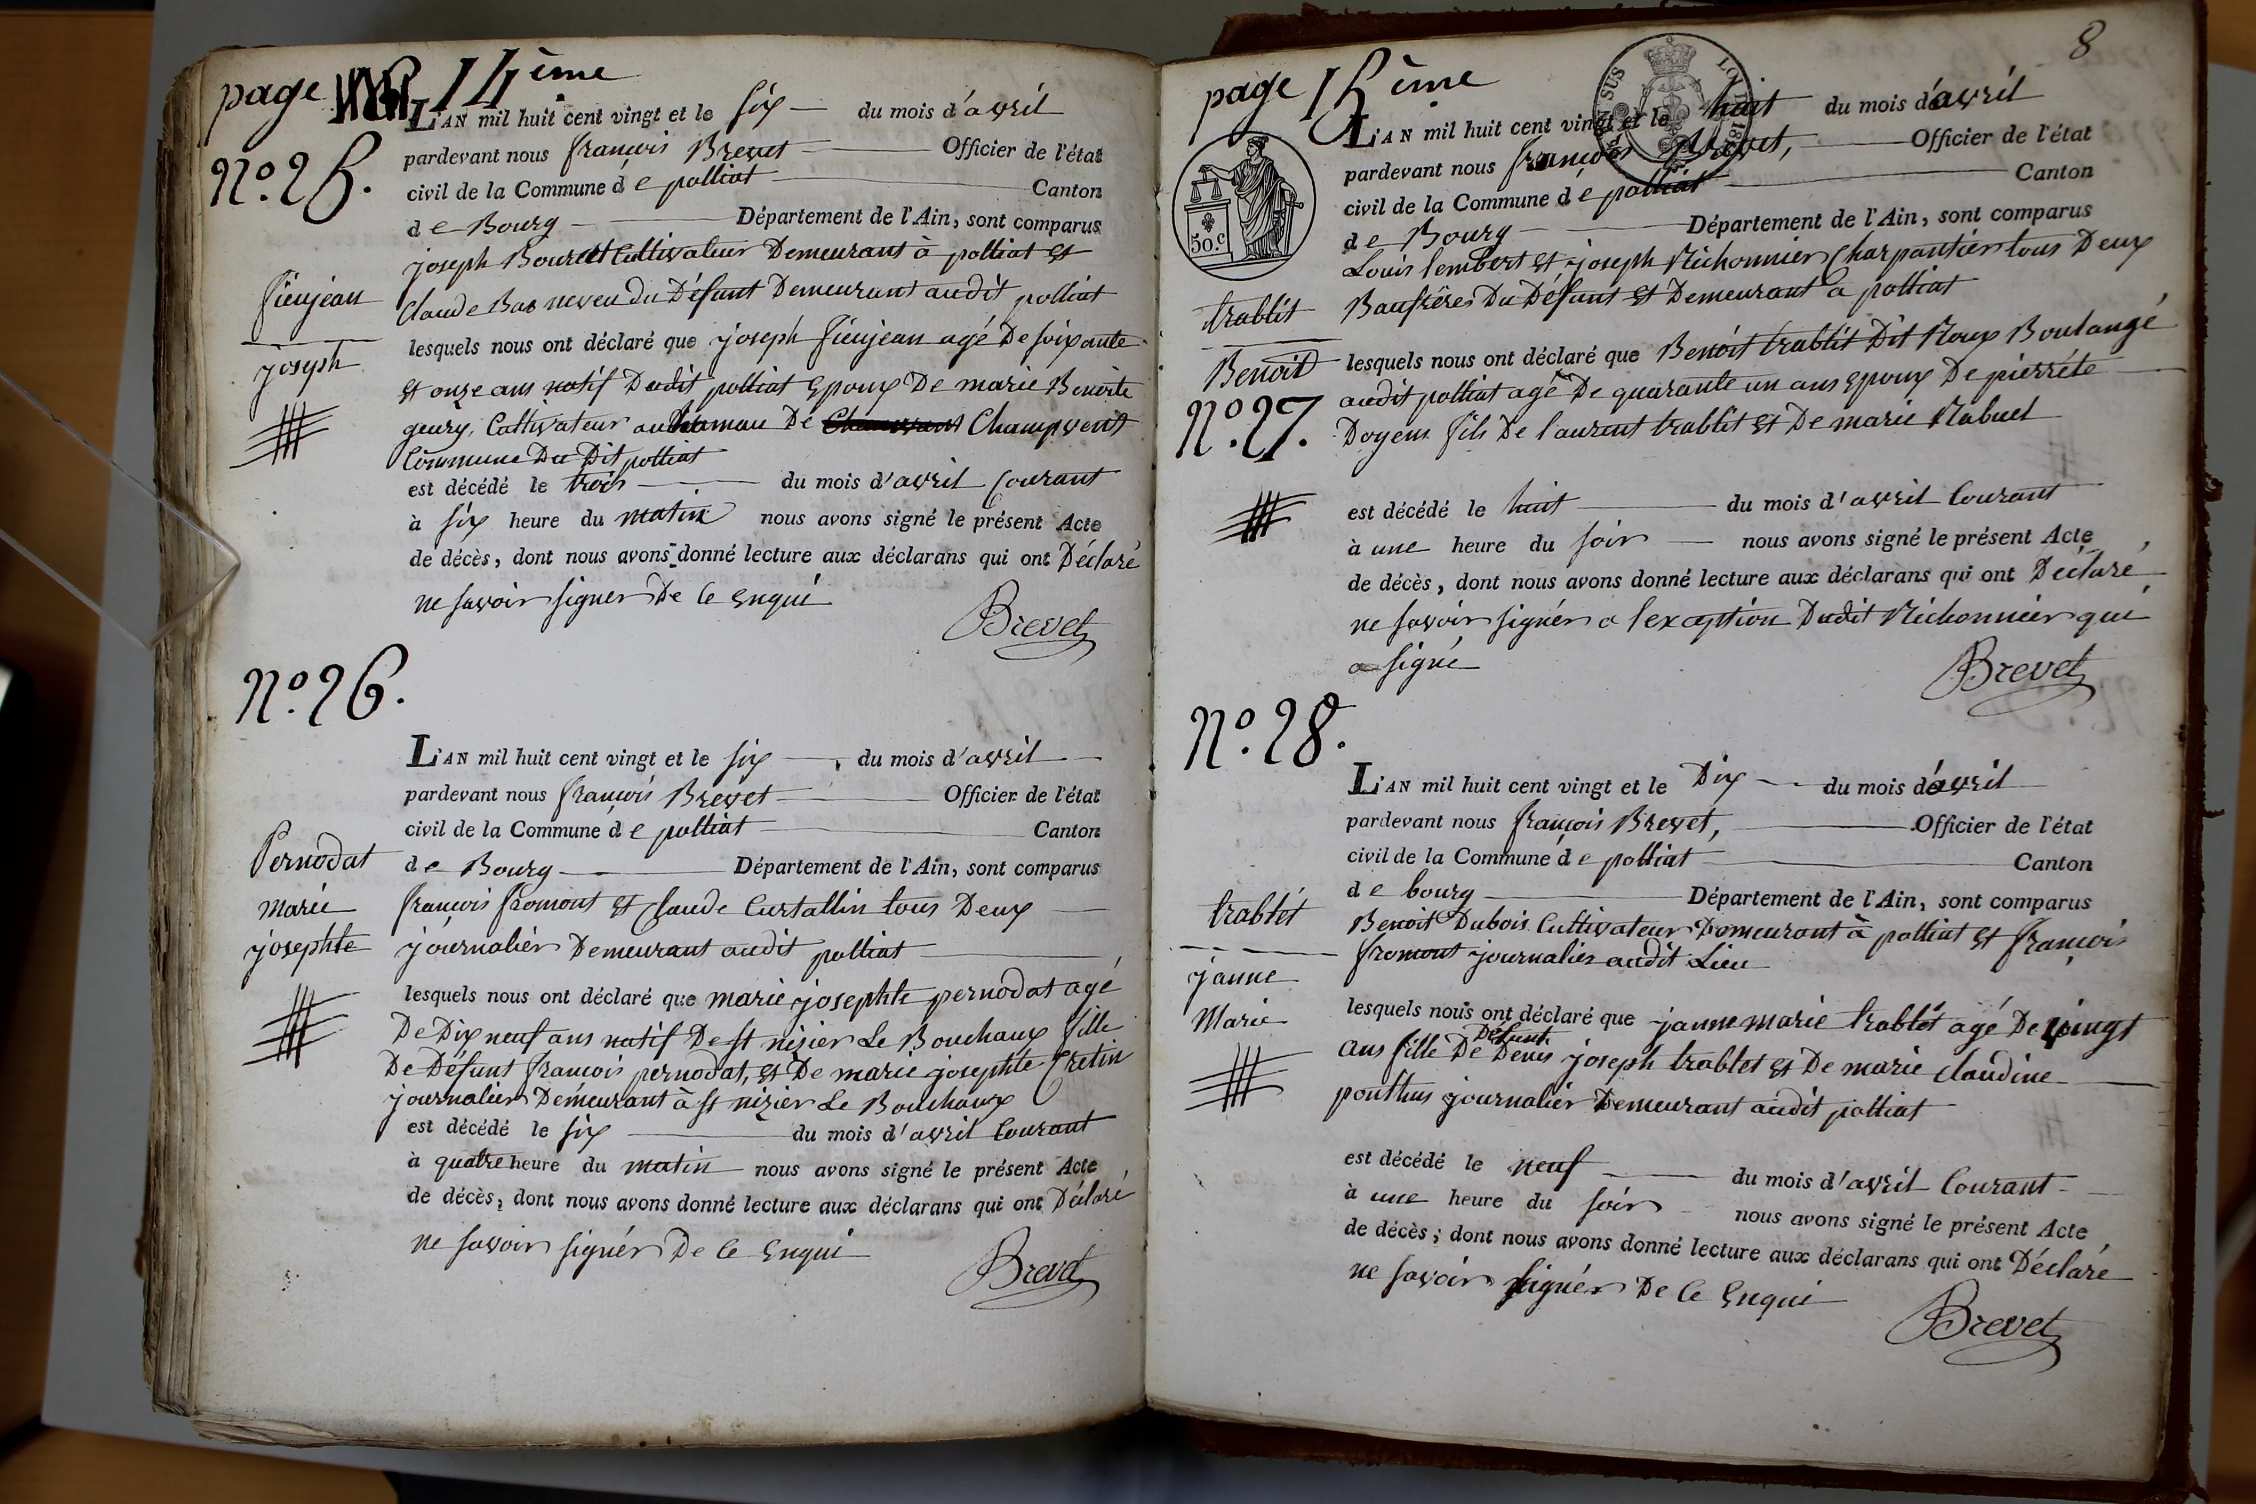 page 14ème
N.º 25.
L'AN mil huit cent vingt et le six du mois d'avril
pardevant nous françois Brevet Officier de l'état
civil de la Commune de polliat Canton
de Bourg Département de l'Ain, sont comparus
joseph Cultivateur Demeurant à polliat et
Claude Bas neveu du Défunt Demeurant audit polliat
fieujean
joseph
lesquels nous ont déclaré que joseph fieujean agé De soixante
et onze ans natif Dudit polliat Epoux De marie Benoite
geury, Cultivateur au hamau De Champvent
Commune Du Dit polliat
est décédé le trois du mois d'avril Courant
à six heure du matin nous avons signé le présent Acte
de décès, dont nous avons donné lecture aux déclarans qui ont Déclaré
ne savoir signer De Ce Enqui
Brevet
N.º 26.
L'AN mil huit cent vingt et le six du mois d'avril
pardevant nous françois Brevet Officier de l'état
civil de la Commune de polliat Canton
de Bourg Département de l'Ain, sont comparus
Pernodat
marie
josephte
françois fromont et Claude Curtallin tous Deux
journalier Demeurant audit polliat
lesquels nous ont déclaré que marie josephte pernodat agé
De Dix neuf ans natif De st nizier Le Bouchaux fille
De Défunt françois pernodat, et De marie josephte Cretin
journalier Demeurant à st nizier Le Bouchaux
est décédé le six du mois d'avril Courant
à quatre heure du matin nous avons signé le présent Acte
de décès, dont nous avons donné lecture aux déclarans qui ont Déclaré
ne savoir signér De Ce Enqui
Brevet
8
page 15ème
50.c
L'AN mil huit cent vingt et le huit du mois d'avril
pardevant nous françois Brevet, Officier de l'état
civil de la Commune de polliat Canton
de Bourg Département de l'Ain, sont comparus
Louis lembert et joseph Michonnier Charpantier tous Deux
Baufréres Du Défunt et Demeurant a polliat
trablit
Benoit
N.º 27.
lesquels nous ont déclaré que Benoit trablit Dit Roux Boulangé
audit polliat agé De quarante un ans Epoux De pierréte
Doyeux fils De laurent trablit et De marie Nabuel
est décédé le huit du mois d'avril Courant
à une heure du soir nous avons signé le présent Acte
de décès, dont nous avons donné lecture aux déclarans qui ont Déclaré
ne savoir signér a l'exception Dudit Michonnier qui
a signé
Brevet
N.º 28.
L'AN mil huit cent vingt et le Dix du mois d'avril
pardevant nous françois Brevet, Officier de l'état
civil de la Commune de polliat Canton
de bourg Département de l'Ain, sont comparus
trablet
janne
Marie
Benoit Dubois Cultivateur Demeurant à polliat et françois
fromont journalier audit Lieu
lesquels nous ont déclaré que janne marie trablet agé De vingt
Défunt
ans fille De Denis joseph trablet et De marie Claudine
ponthus journalier Demeurant audit polliat
est décédé le neuf du mois d'avril Courant
à une heure du soir nous avons signé le présent Acte
de décès; dont nous avons donné lecture aux déclarans qui ont Déclaré
ne savoir signér De Ce Enqui
Brevet